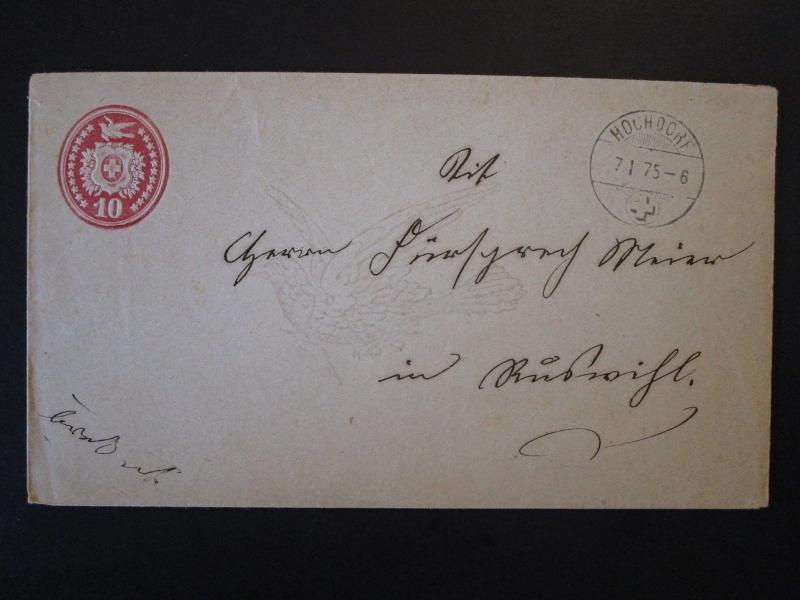 10
HOCHDORF
7 I 75-6
Tit
Herrn Fürsprech Meier
in Ruswihl.